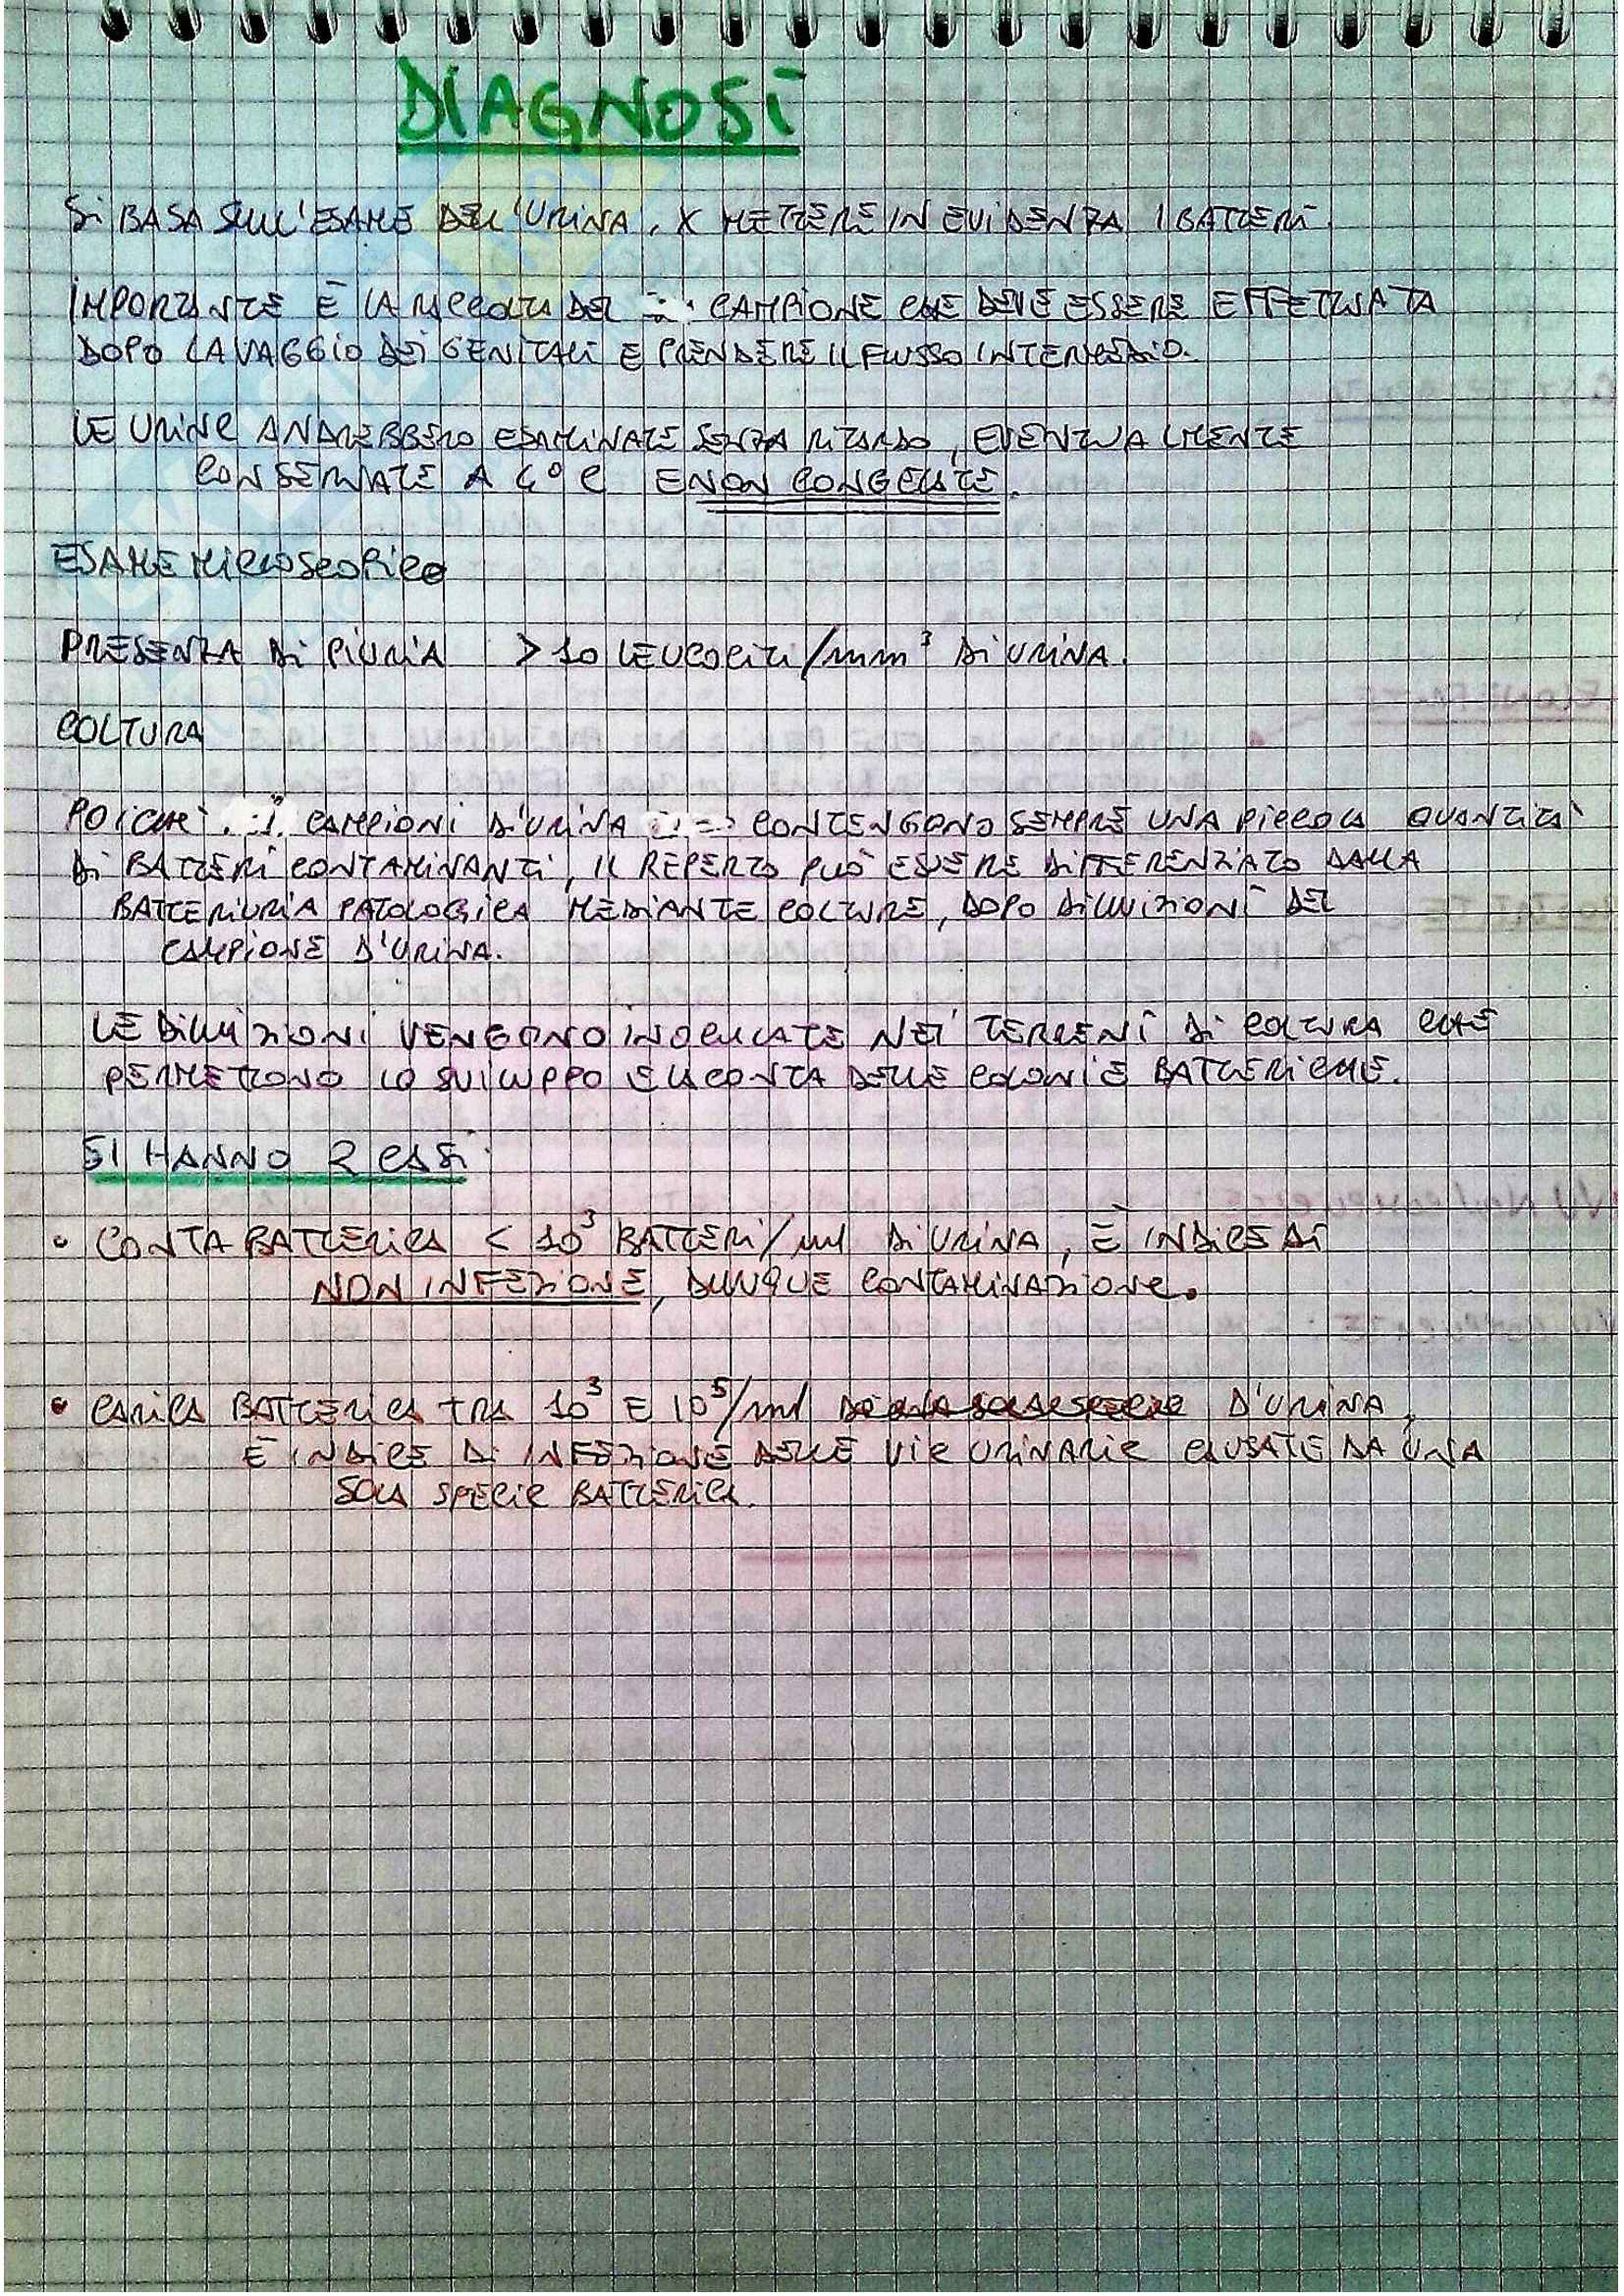 DIAGNOSI
SI BASA SULL'ESAME DELL'URINA, X METTERE IN EVIDENZA I BATTERI.
IMPORTANTE È LA RACCOLTA DEL CAMPIONE CHE DEVE ESSERE EFFETTUATA
DOPO LAVAGGIO DEI GENITALI E PRENDERE IL FLUSSO INTERMEDIO.
LE URINE ANDREBBERO ESAMINATE SENZA RITARDO, EVENTUALMENTE
CONSERVATE A 4°C E NON CONGELATE.
ESAME MICROSCOPICO
PRESENZA DI PIURIA > 10 LEUCOCITI/mm³ DI URINA.
COLTURA
POICHÈ I CAMPIONI D'URINA CONTENGONO SEMPRE UNA PICCOLA QUANTITÀ
DI BATTERI CONTAMINANTI, IL REPERTO PUÒ ESSERE DIFFERENZIATO DALLA
BATTERIURIA PATOLOGICA MEDIANTE COLTURE, DOPO DILUIZIONI DEL
CAMPIONE D'URINA.
LE DILUIZIONI VENGONO INOCULATE NEI TERRENI DI COLTURA CHE
PERMETTONO LO SVILUPPO E LA CONTA DELLE COLONIE BATTERICHE.
SI HANNO 2 CASI:
• CONTA BATTERICA < 10³ BATTERI/ml DI URINA, È INDICE DI
NON INFEZIONE, DUNQUE CONTAMINAZIONE.
• CARICA BATTERICA TRA 10³ E 10⁵/ml D'URINA,
È INDICE DI INFEZIONE DELLE VIE URINARIE CAUSATE DA UNA
SOLA SPECIE BATTERICA.